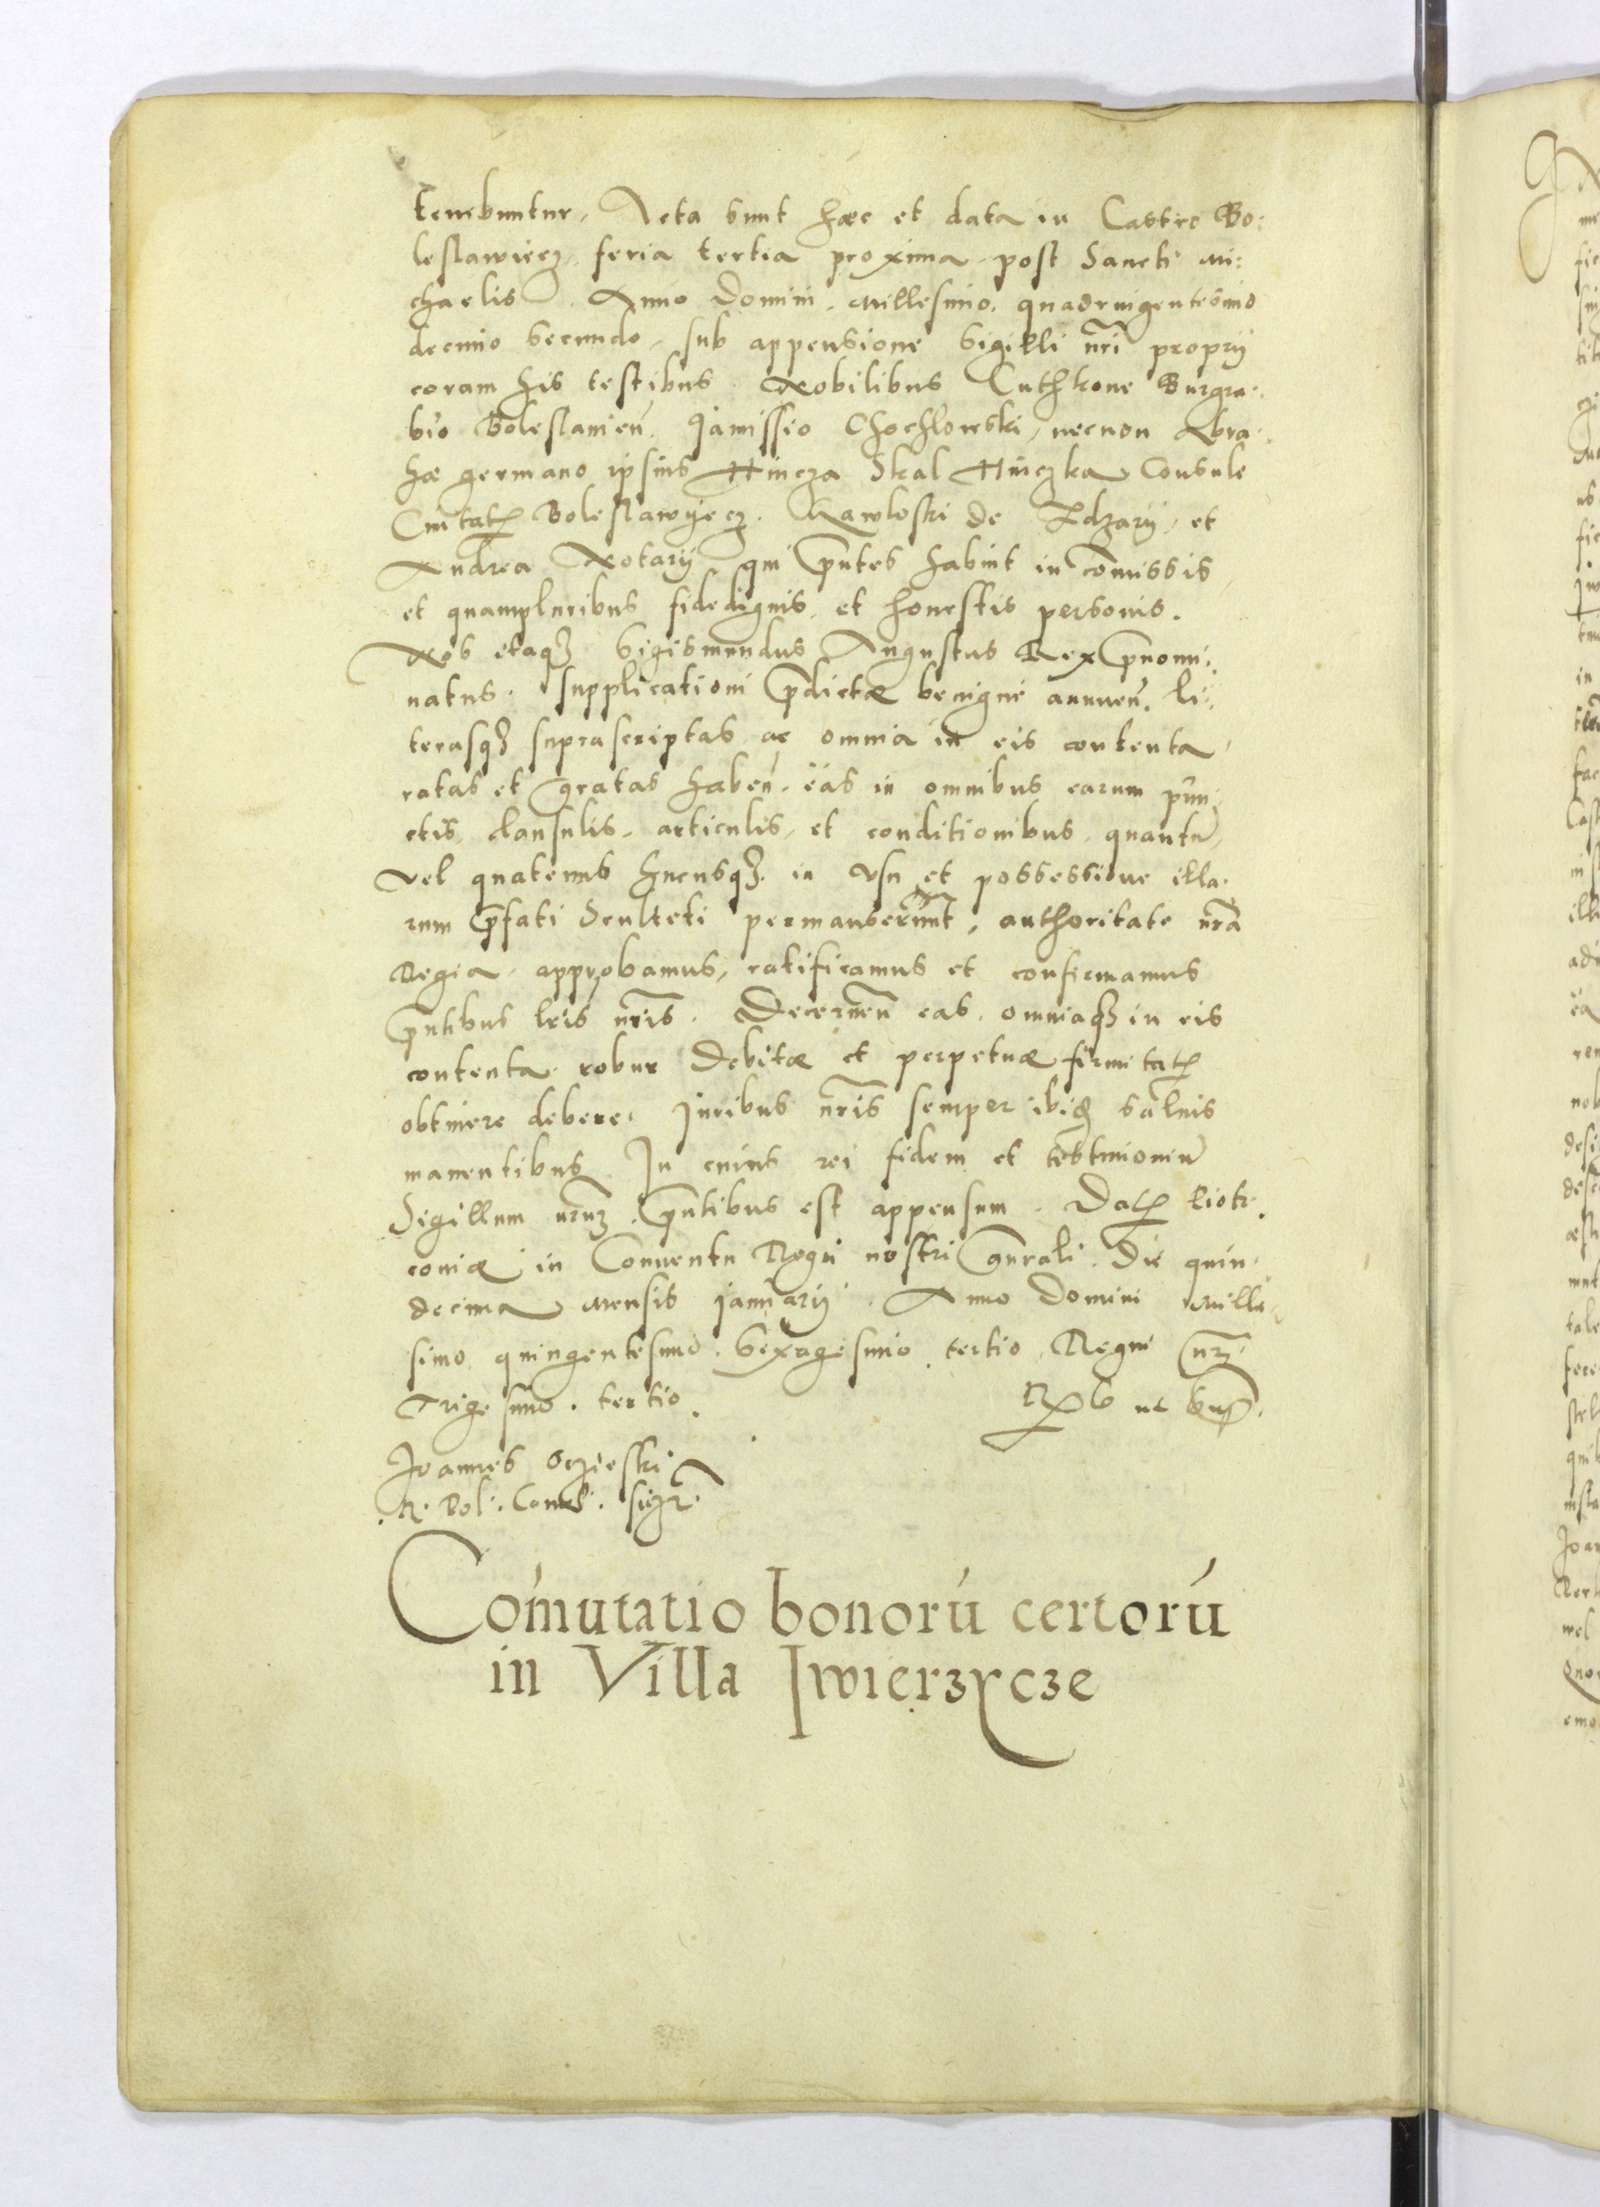 tenebuntur, Acta sunt hæc et data in Castro Bo:
leslawiecz, feria tertia proxima post Sancti Mi:
chaelis. Anno Domini. Millesimo. quadringentesimo
decimo secundo, sub appensione sigilli nr̃i proprij
coram his testibus. Nobilibus Cuthkone Burgra:
bio Boleslauień. Janissio Chochlowski, necnon Abra:
hæ germano ipsius Hincza Skal Hinczka Consule
Ciuitatꝭ Boleslawyecz. Kawloski de Zdzarij, et
Andrea Notarij qui p̃ntes habiũt in com̃issis,
et quampluribus fidedignis et honestis personis.
Nos itaqꝫ Sigismundus Augustus Rex p̃nomi:
natus. supplicationi p̃dictæ benigne annueñ. li:
terasqꝫ suprascriptas ac omnia in eis contenta,
ratas et gratas habeñ. eas in omnibus earum pun:
ctis, clausulis, articulis, et conditionibus quantũ,
vel quatenus hucusqꝫ. in vsu et possessione illa:
rum p̃fati Sculteti permanserunt, authoritate nr̃a
Regia, approbamus, ratificamus et confirmamus
p̃ntibus lr̃is nr̃is. Decerneñ eas omniaqꝫ in eis
contenta robur debitæ et perpetuæ firmitatꝭ
obtinere debere. Juribus nr̃is semper ibiꝗ saluis
manentibus. In cuius rei fidem et testimoniũ
Sigillum nr̃uꝫ p̃ntibus est appensum. Datꝭ Piotr:
couiæ in Conuentu Regni nostri gñrali. Die quin:
decima Mensis Januarij. Anno Domini Mille:
simo quingentesimo. sexagesimo tertio, Regni nr̃.
Trigesimo. tertio.
Joannes Oczieski
R. Pol. Canc̃.
Com̃utatio bonorũ certorũ
in Villa Iwierzycze